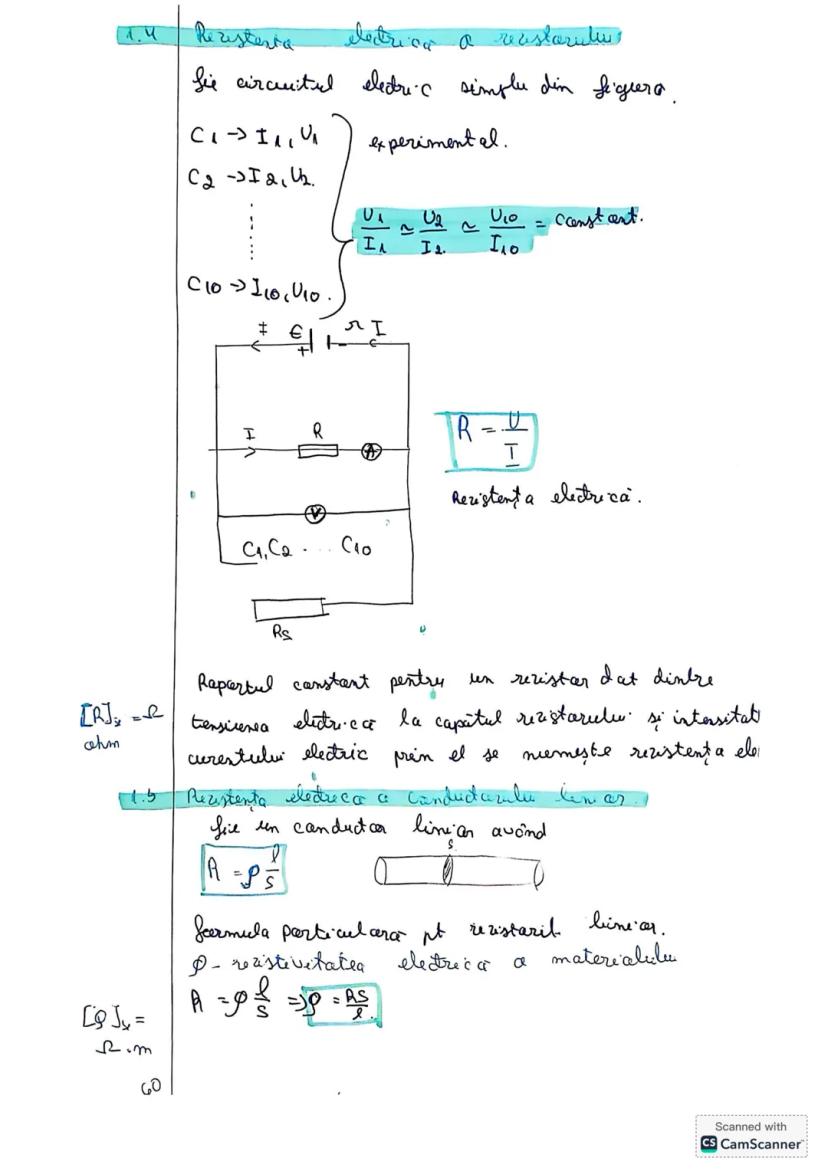 1.4 Rezistența electrică a rezistorului
fie circuitul electric simplu din figura.
C1 -> I1, U1
experimental.
C2 -> I2, U2.
U1/I1 ≃ U2/I2 ≃ U10/I10 = constant.
C10 -> I10, U10.
I E r I
+ -
I R A
R = U/I
Rezistența electrică.
V
C1, C2 . ... C10
Rs
Raportul constant pentru un rezistor dat dintre
[R] = Ω
tensiunea electrică la capătul rezistorului și intensitat
ohm
curentului electric prin el se numește rezistența ele
1.5 Rezistența electrică a conductorului liniar.
fie un conductor liniar având
R = ρ l/S
S
formula particulară pt rezistorii liniar.
ρ - rezistivitatea electrică a materialului
R = ρ l/S => ρ = RS/l.
[ρ] =
Ω.m
60
Scanned with
CS CamScanner